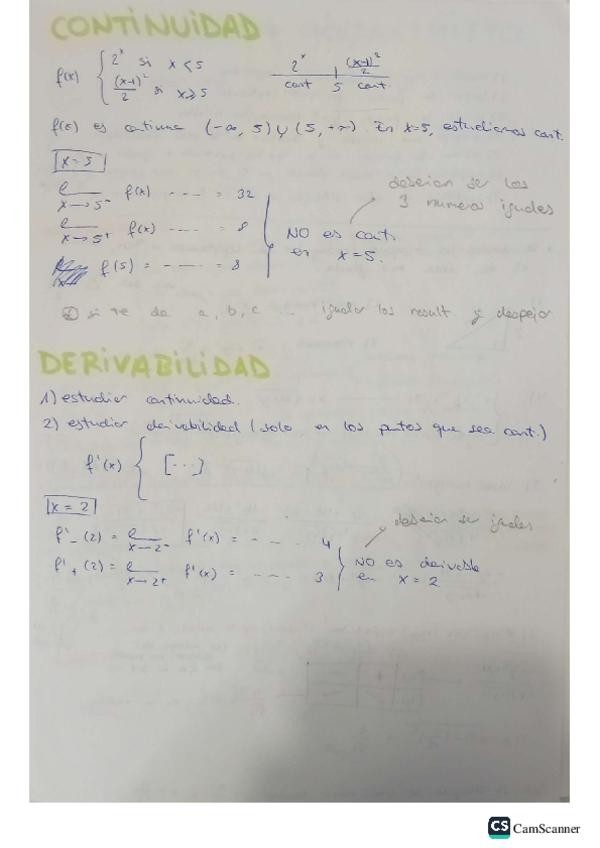 CONTINUIDAD
f(x) { 2^x si x < 5
(x-1)²/2 si x ≥ 5
2^x (x-1)²/2
cont 5 cont
f(x) es continua (-∞, 5) y (5, +∞). En x=5, estudiamos cont.
x = 5
x→5⁻ f(x) ---- = 32
x→5⁺ f(x) ---- = 8
f(5) = ---- = 8
NO es cont.
en x=5.
deberían ser los
3 números iguales
si te da a, b, c ... igualar los result. y despejar
DERIVABILIDAD
1) estudiar continuidad.
2) estudiar derivabilidad (solo en los puntos que sea cont.)
f'(x) { [...]
x = 2
f'₋(2) = x→2⁻ f'(x) = - - - 4
f'₊(2) = x→2⁺ f'(x) = ---- 3
deberían ser iguales
NO es derivable
en x = 2
CS CamScanner